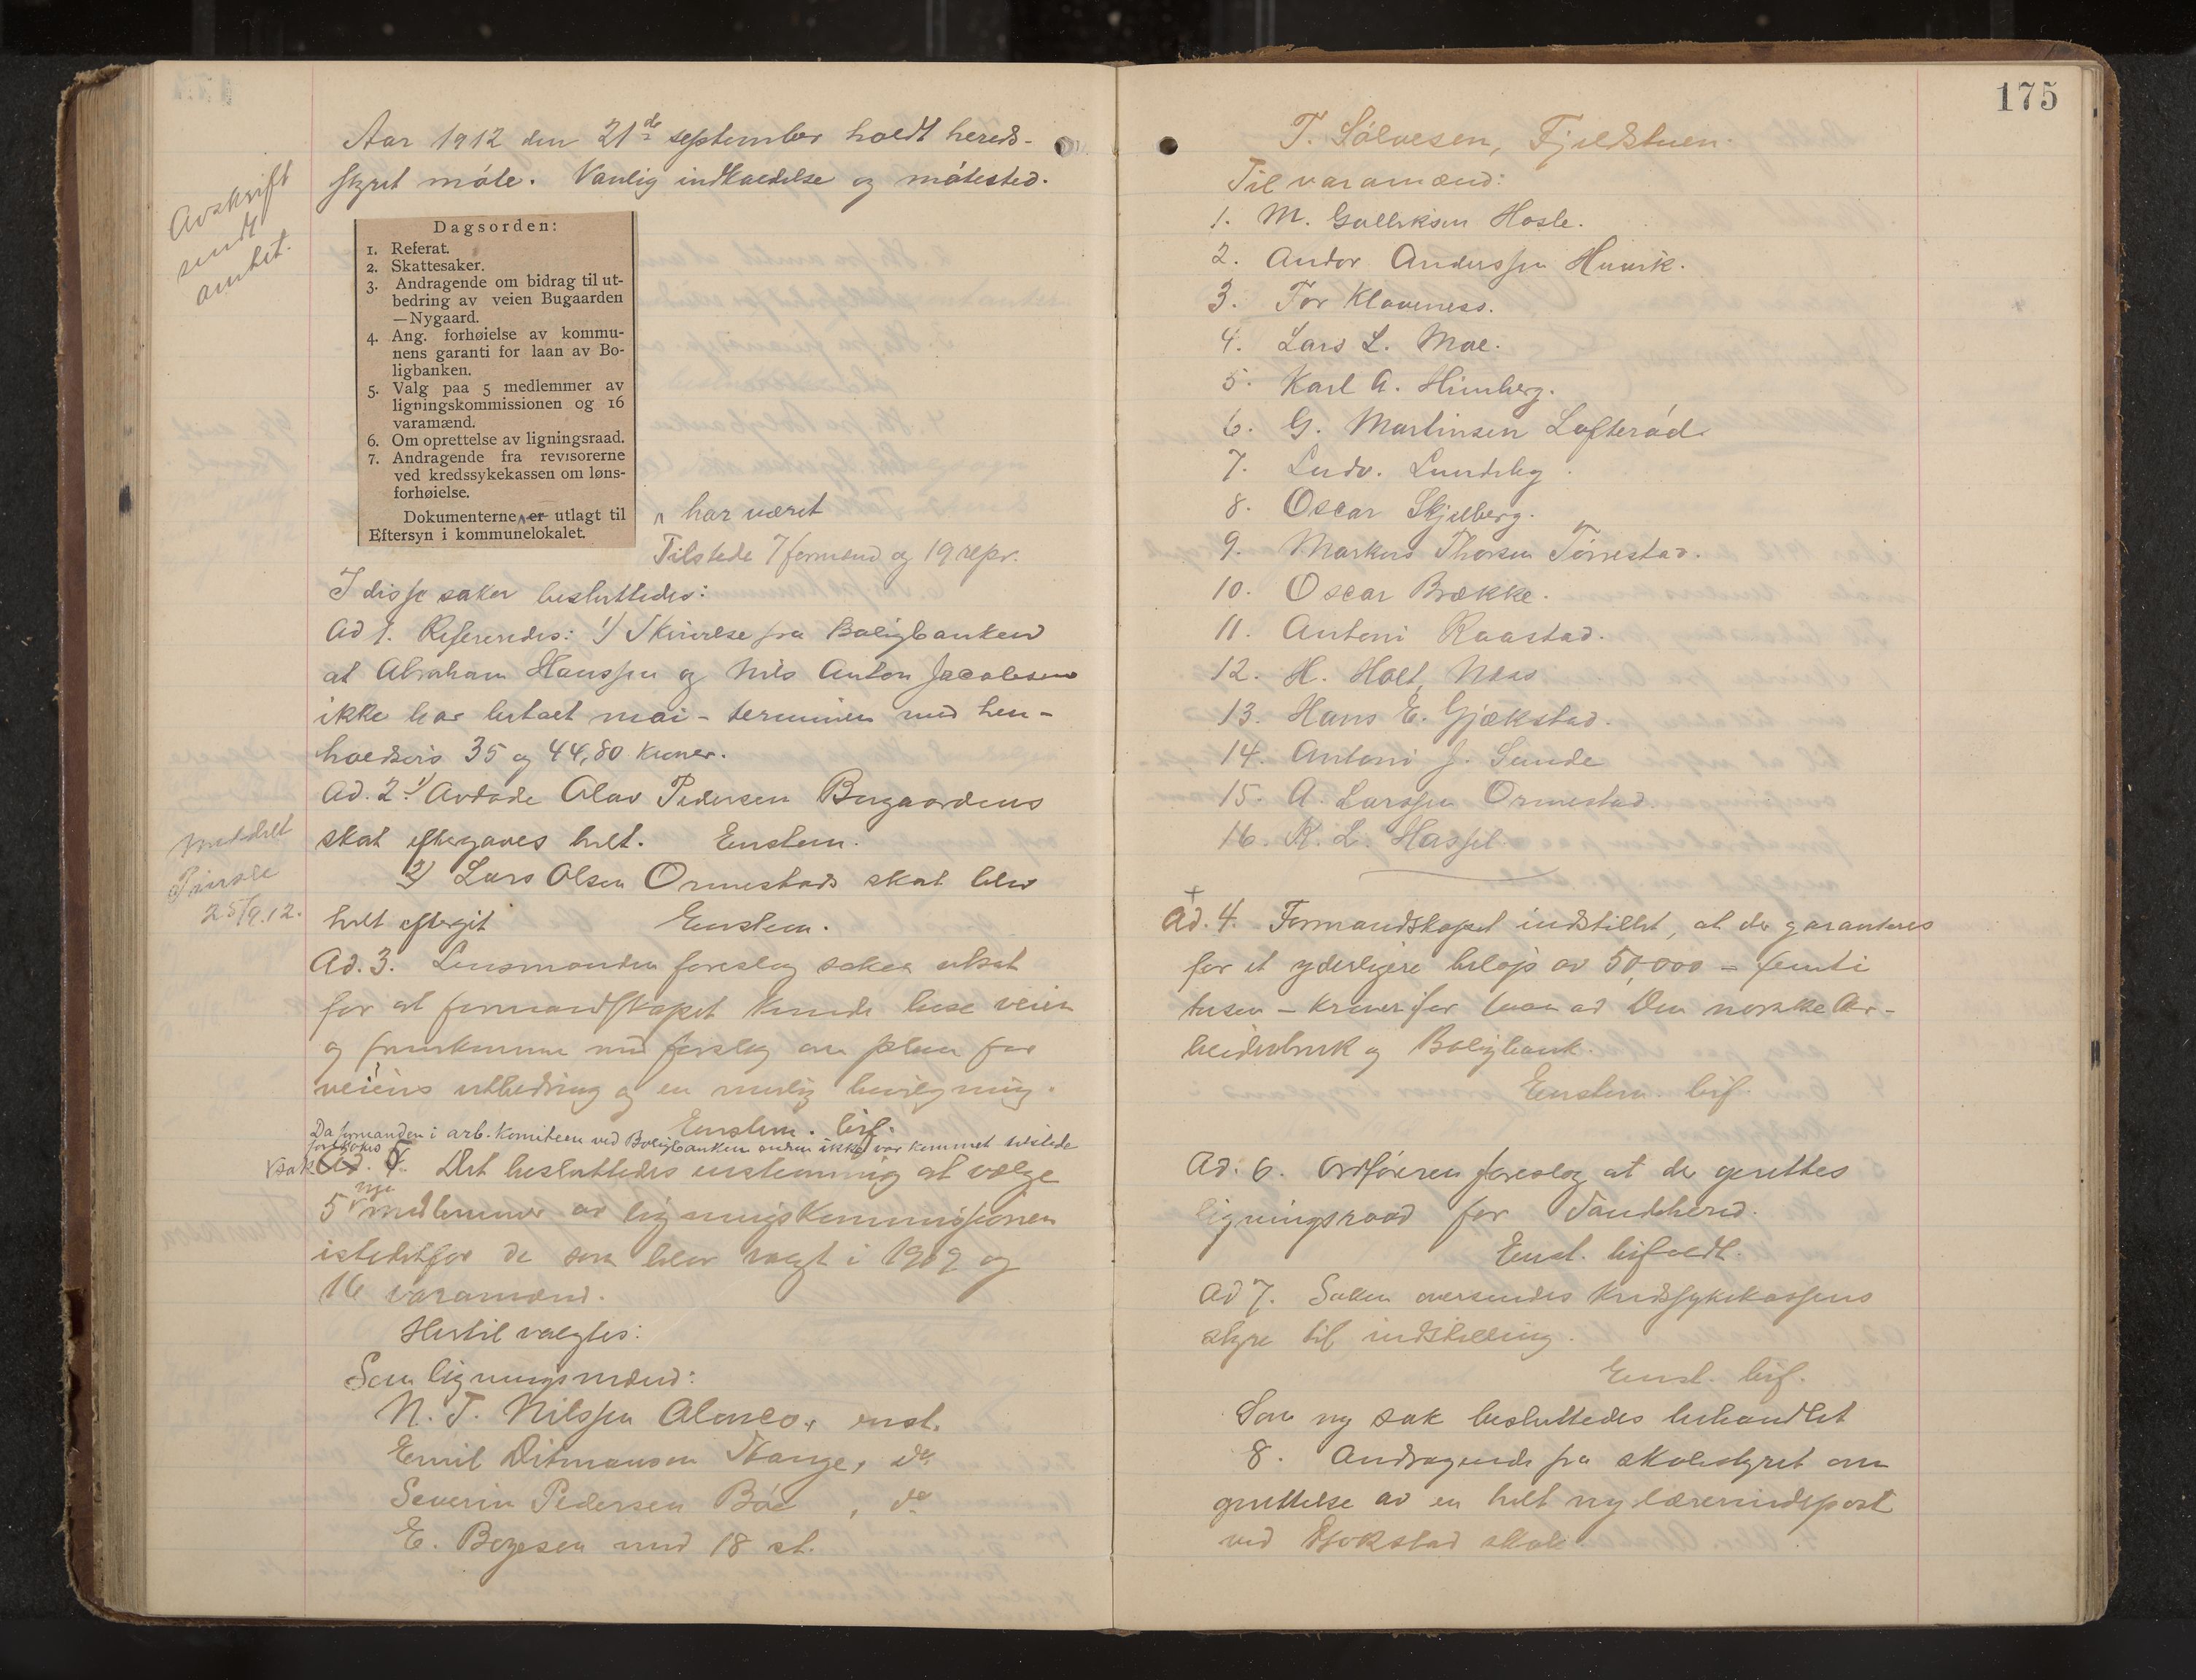 Aar 1912 den 21de september holdt hereds-
styret møte. Vanlig indkaldelse og møtested.
Avskrift
sendt
amtet.
Dagsorden:
1. Referat.
2. Skattesaker.
3. Andragende om bidrag til ut-
bedring av veien Bugaarden
—Nygaard.
4. Ang. forhøielse av kommu-
nens garanti for laan av Bo-
ligbanken.
5. Valg paa 5 medlemmer av
ligningskommissionen og 16
varamænd.
6. Om oprettelse av ligningsraad.
7. Andragende fra revisorerne
ved kredssykekassen om løns-
forhøielse.
Dokumenterne er utlagt til
Eftersyn i kommunelokalet.
har været
Tilstede 7 formænd og 19 repr.
I disse saker besluttedes:
Ad 1. Refereredes: 1) Skrivelse fra Boligbanken
at Abraham Hanssen og Nils Anton Jacobsen
ikke har betalt mai-terminen med hen-
holdsvis 35 og 44,80 kroner.
Ad. 2. 1) Avdøde Olav Pedersen Bugaardens
skat eftergaves helt. Enstem.
Meddelt
25/9.12.
2) Lars Olsen Ormestads skat blev
helt eftergit Enstem.
Ad. 3. Lensmanden foreslog saken utsat
for at formandskapet kunde bese veien
og fremkomme med forslag om plan for
veiens utbedring og en mulig bevilgning.
Enstem. bif.
Da formanden i arb. komiteen ved Boligbanken endnu ikke var kommet tilstede
sak Ad. 5. Det besluttedes enstemmig at vælge
5 nye medlemmer av ligningskommissionen
istedetfor de som blev valgt i 1909 og
16 varamænd.
Hertil valgtes:
Som ligningsmænd:
N. T. Nilssen Almco, enst.
Emil Ditmansen Stange, do
Severin Pedersen Bøe, do
E. Bogesen med 18 st.
175
T. Sølvesen, Fjeldstuen.
Til varamænd:
1. M. Gulliksen Hasle.
2. Andor Anderssen Huvik.
3. Tor Klaveness.
4. Lars L. Moe.
5. Karl A. Himberg.
6. G. Martinsen Lofterød.
7. Ludv. Lundeby.
8. Oscar Skjelberg.
9. Markus Thorsen Tørrestad.
10. Oscar Brække.
11. Antoni Raastad.
12. H. Holt, Nes
13. Hans E. Gjækstad.
14. Antoni J. Sunde
15. A. Larssen Ormestad.
16. K. L. Hassel.
Ad. 4. Formandskapet indstillet, at der garanteres
for et yderligere beløp av 50,000 – femti
tusen – kroner for laan av Den norske Ar-
beiderbruk og Boligbank.
Enstem. bif.
Ad. 6. Ordføreren foreslog at der oprettes
ligningsraad for Sandeherred.
Enst. bifaldt.
Ad 7. Saken oversendes kredssykekassens
styre til indstilling.
Enst. bif.
Som ny sak besluttedes behandlet
8. Andragende fra skolestyret om
oprettelse av en helt ny lærerindepost
ved Gokstad skole.